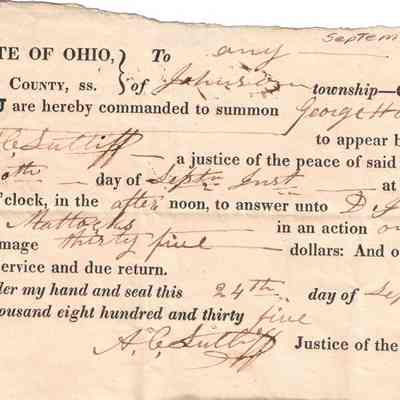 Septem
TE OF OHIO, To any
COUNTY, ss. of Johnston township—
are hereby commanded to summon George
A C Sutliff to appear b
a justice of the peace of said
day of Septm Inst at
o'clock, in the after noon, to answer unto D
Mattocks in an action o
mage thirty five dollars: And o
ervice and due return.
der my hand and seal this 24th day of Sep
ousand eight hundred and thirty five
A. C. Sutliff Justice of the